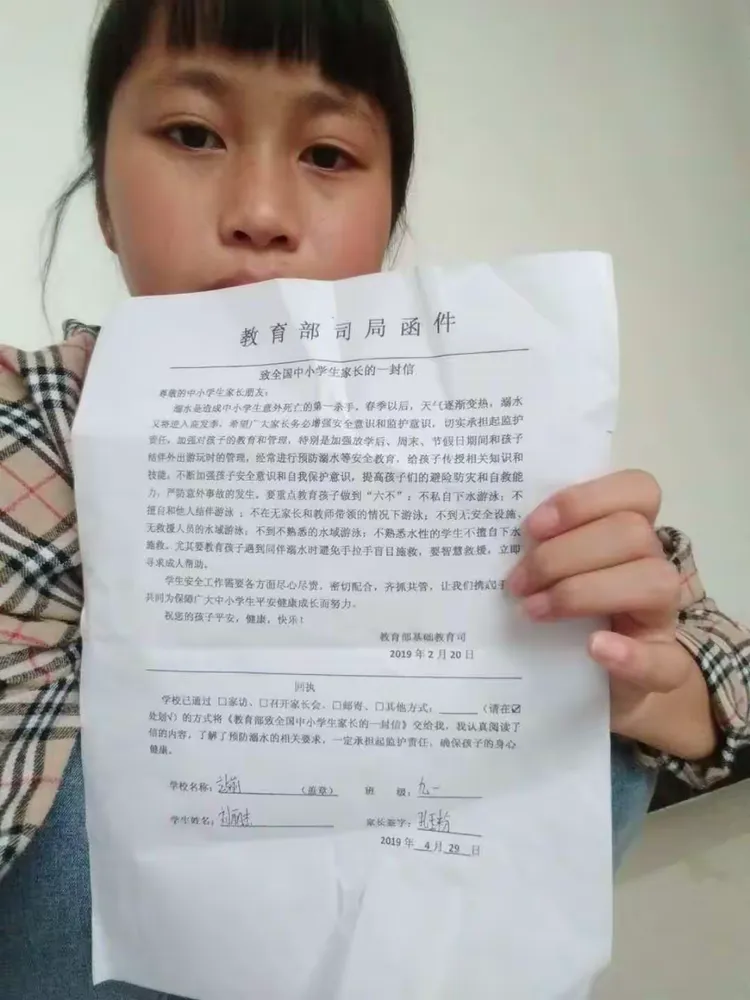 教育部司局函件
致全国中小学生家长的一封信
尊敬的中小学生家长朋友:
溺水是造成中小学生意外死亡的第一杀手。春季以后,天气逐渐变热,溺水
又将进入高发季,希望广大家长务必增强安全意识和监护意识,切实承担起监护
责任,加强对孩子的教育和管理,特别是加强放学后、周末、节假日期间和孩子
结伴外出游玩时的管理,经常进行预防溺水等安全教育,给孩子传授相关知识和
技能,不断加强孩子安全意识和自我保护意识,提高孩子们的避险防灾和自救能
力,严防意外事故的发生。要重点教育孩子做到“六不”:不私自下水游泳;不
擅自和他人结伴游泳;不在无家长和教师带领的情况下游泳;不到无安全设施、
无救援人员的水域游泳;不到不熟悉的水域游泳;不熟悉水性的学生不擅自下水
施救。尤其要教育孩子遇到同伴溺水时避免手拉手盲目施救,要智慧救援,立即
寻求成人帮助。
学生安全工作需要各方面尽心尽责、密切配合,齐抓共管,让我们携起手
共同为保障广大中小学生平安健康成长而努力。
祝您的孩子平安,健康,快乐!
教育部基础教育司
2019年2月20日
回执
学校已通过 □家访、□召开家长会、□邮寄、□其他方式:______(请在☑
处划√)的方式将《教育部致全国中小学生家长的一封信》交给我,我认真阅读了
信的内容,了解了预防溺水的相关要求,一定承担起监护责任,确保孩子的身心
健康。
学校名称: (盖章) 班 级:九一
学生姓名: 家长签字:
2019年4月29日